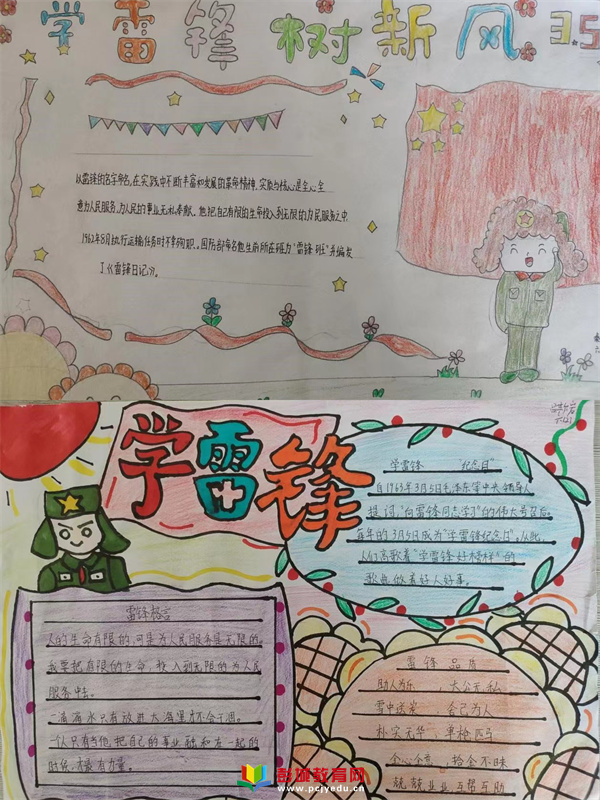 学雷锋 树新风 3.5
以雷锋的名字命名,在实践中不断丰富和发展的革命精神,实质与核心是全心全
意为人民服务,为人民的事业无私奉献。他把自己有限的生命投入到无限的为民服务之中
1962年8月执行运输任务时不幸殉职。国防部命名他生前所在班为“雷锋班”并编发
了《雷锋日记》。
学雷锋
学雷锋 “纪念日”
自1963年3月5日毛泽东等中央领导人
提词“向雷锋同志学习”的伟大号召后。
每年的3月5日成为“学雷锋纪念日”。从此,
人们高歌着“学雷锋好榜样”的
歌曲做着好人好事。
雷锋格言
人的生命有限的,可是为人民服务是无限的。
我要把有限的生命,投入到无限的为人民
服务中去。
一滴滴水只有放进大海里才不会干涸。
一个人只有当他把自己的事业融和在一起的
时候,才最有力量。
雷锋品质
助人为乐,大公无私
雪中送炭,舍己为人
朴实无华
全心全意,拾金不昧
兢兢业业 互帮互助
彭城教育网
www.pcjyedu.cn